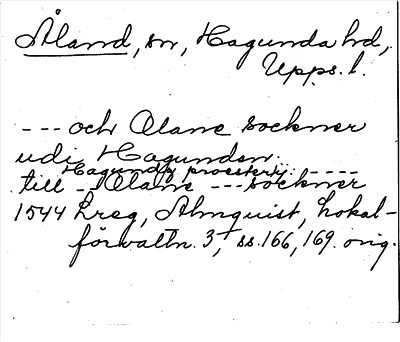 Åland, sn, Hagunda hd,
Upps. l.
--- och Olane sockner
udi Hagunden.
Hagundz prosteri: ----
till -- Olane --- sockner
1544 Lreg, Almquist, Lokal-
förvaltn. 3, ss. 166, 169. orig.